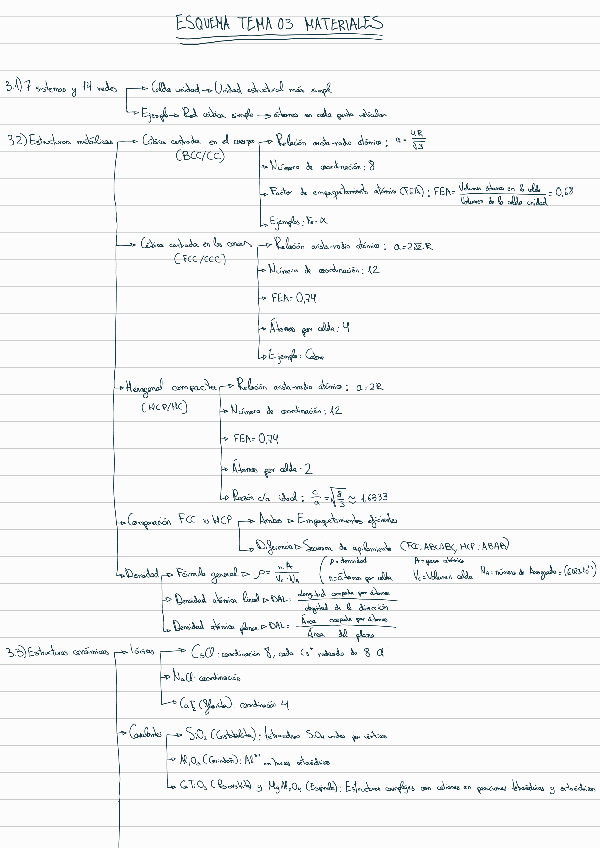 ESQUEMA TEMA 03 MATERIALES
3.1) 7 sistemas y 14 redes → Celda unidad → Unidad estructural más simple
→ Ejemplo → Red cúbica simple → átomos en cada punto reticular
3.2) Estructuras metálicas → Cúbica centrada en el cuerpo → Relación arista-radio atómico: a = 4R/√3
(BCC/CC)
→ Número de coordinación: 8
→ Factor de empaquetamiento atómico (FEA): FEA = Volumen átomos en la celda / Volumen de la celda unidad = 0,68
→ Ejemplos: Fe-α
→ Cúbica centrada en las caras → Relación arista-radio atómico: a = 2√2·R
(FCC/CCC)
→ Número de coordinación: 12
→ FEA = 0,74
→ Átomos por celda: 4
→ Ejemplo: Cobre
→ Hexagonal compacta → Relación arista-radio atómico: a = 2R
(HCP/HC)
→ Número de coordinación: 12
→ FEA = 0,74
→ Átomos por celda: 2
→ Razón c/a ideal: c/a = √8/3 ≈ 1,6333
→ Comparación FCC vs HCP → Ambas → Empaquetamientos eficientes
→ Diferencia → Secuencia de apilamiento (FCC: ABCABC, HCP: ABAB)
→ Densidad → Fórmula general → ρ = n·A / Vc·NA (ρ = densidad A = peso atómico
n = átomos por celda Vc = Volumen celda NA = número de Avogadro =
→ Densidad atómica lineal → DAL: longitud ocupada por átomos / longitud de la dirección
→ Densidad atómica planar → DAL: Área ocupada por átomos / Área del plano
3.3) Estructuras cerámicas → Iónicas → CsCl: coordinación 8, cada Cs⁺ rodeado de 8 Cl
→ NaCl: coordinación
→ (fluorita) coordinación 4
→ Covalentes → SiO₂ (Cristobalita): tetraedros SiO₄ unidos por vértices
→ Al₂O₃ (Corindón): Al³⁺ en huecos octaédricos
→ CaTiO₃ (Perovskita) y MgAl₂O₄ (Espinela): Estructuras complejas con cationes en posiciones tetraédricas y octaédricas